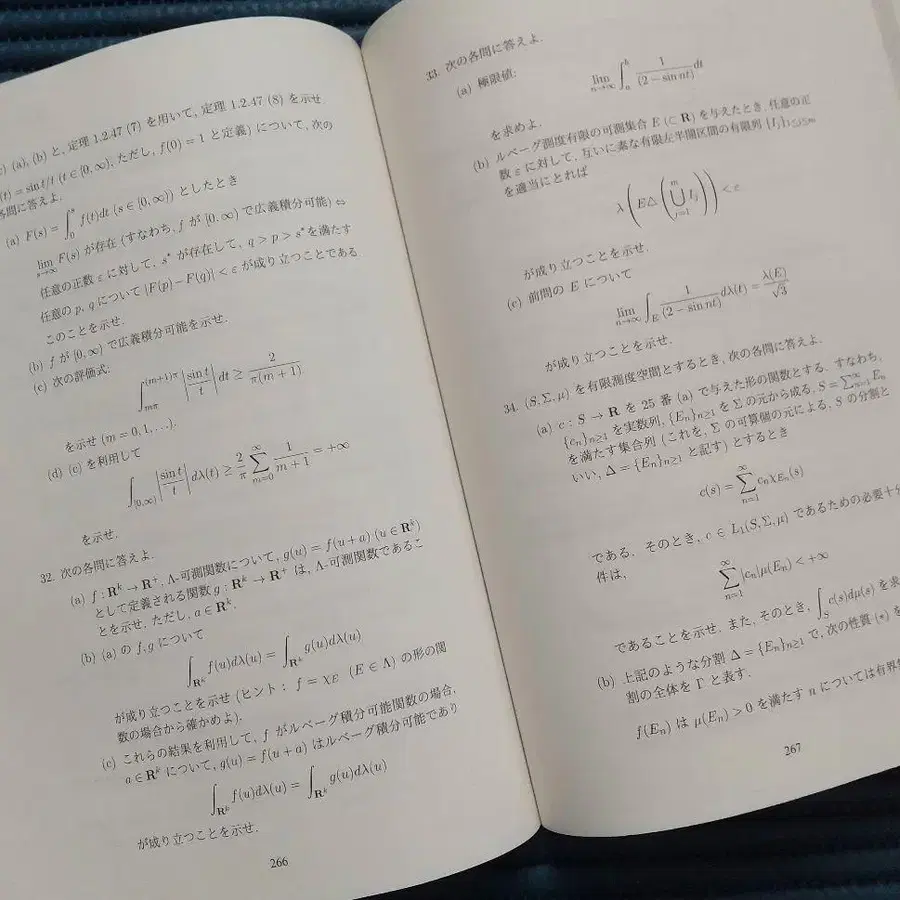 (a), (b) と, 定理 1.2.47 (7) を用いて, 定理 1.2.47 (8) を示せ
(t) = sin t/t (t ∈ [0, ∞), ただし, f(0) = 1 と定義) について, 次の
各問に答えよ.
(a) F(s) = ∫_0^s f(t)dt (s ∈ [0, ∞)) としたとき
lim_{s→∞} F(s) が存在 (すなわち, f が [0, ∞) で広義積分可能) ⇔
任意の正数 ε に対して, s* が存在して, q > p > s* を満たす
任意の p, q について |F(p) − F(q)| < ε が成り立つことである.
このことを示せ.
(b) f が [0, ∞) で広義積分可能を示せ.
(c) 次の評価式:
∫_{mπ}^{(m+1)π} |sin t / t| dt ≥ 2 / π(m+1)
を示せ (m = 0, 1, …).
(d) (c) を利用して
∫_{[0,∞)} |sin t / t| dλ(t) ≥ 2/π ∑_{m=0}^{∞} 1/(m+1) = +∞
を示せ.
32. 次の各問に答えよ.
(a) f : R^k → R^+, Λ-可測関数について, g(u) = f(u + a) (u ∈ R^k)
として定義される関数 g : R^k → R^+ は, Λ-可測関数であるこ
とを示せ. ただし, a ∈ R^k.
(b) (a) の f, g について
∫_{R^k} f(u)dλ(u) = ∫_{R^k} g(u)dλ(u)
が成り立つことを示せ (ヒント : f = χ_E (E ∈ Λ) の形の関
数の場合から確かめよ).
(c) これらの結果を利用して, f がルベーグ積分可能関数の場合,
a ∈ R^k について, g(u) = f(u + a) はルベーグ積分可能であり
∫_{R^k} f(u)dλ(u) = ∫_{R^k} g(u)dλ(u)
が成り立つことを示せ.
266
33. 次の各問に答えよ.
(a) 極限値:
lim_{n→∞} ∫_a^b 1/(2 − sin nt) dt
を求めよ.
(b) ルベーグ測度有限の可測集合 E (⊂ R) を与えたとき, 任意の正
数 ε に対して, 互いに素な有限左半開区間の有限列 {I_j}_{1≤j≤m}
を適当にとれば
λ(E△(⋃_{j=1}^{m} I_j)) < ε
が成り立つことを示せ.
(c) 前問の E について
lim_{n→∞} ∫_E 1/(2 − sin nt) dλ(t) = λ(E)/√3
が成り立つことを示せ.
34. (S, Σ, μ) を有限測度空間とするとき, 次の各問に答えよ.
(a) c : S → R を 25 番 (a) で与えた形の関数とする. すなわち,
{c_n}_{n≥1} を実数列, {E_n}_{n≥1} を Σ の元から成る, S = ∑_{n=1}^{∞} E_n
を満たす集合列 (これを, Σ の可算個の元による, S の分割と
いい, Δ = {E_n}_{n≥1} と記す) とするとき
c(s) = ∑_{n=1}^{∞} c_n χ_{E_n}(s)
である. そのとき, c ∈ L_1(S, Σ, μ) であるための必要十分
件は,
∑_{n=1}^{∞} |c_n|μ(E_n) < +∞
であることを示せ. また, そのとき, ∫_S c(s)dμ(s) を求
(b) 上記のような分割 Δ = {E_n}_{n≥1} で, 次の性質 (*) を
割の全体を Γ と表す.
f(E_n) は μ(E_n) > 0 を満たす n については有界
267